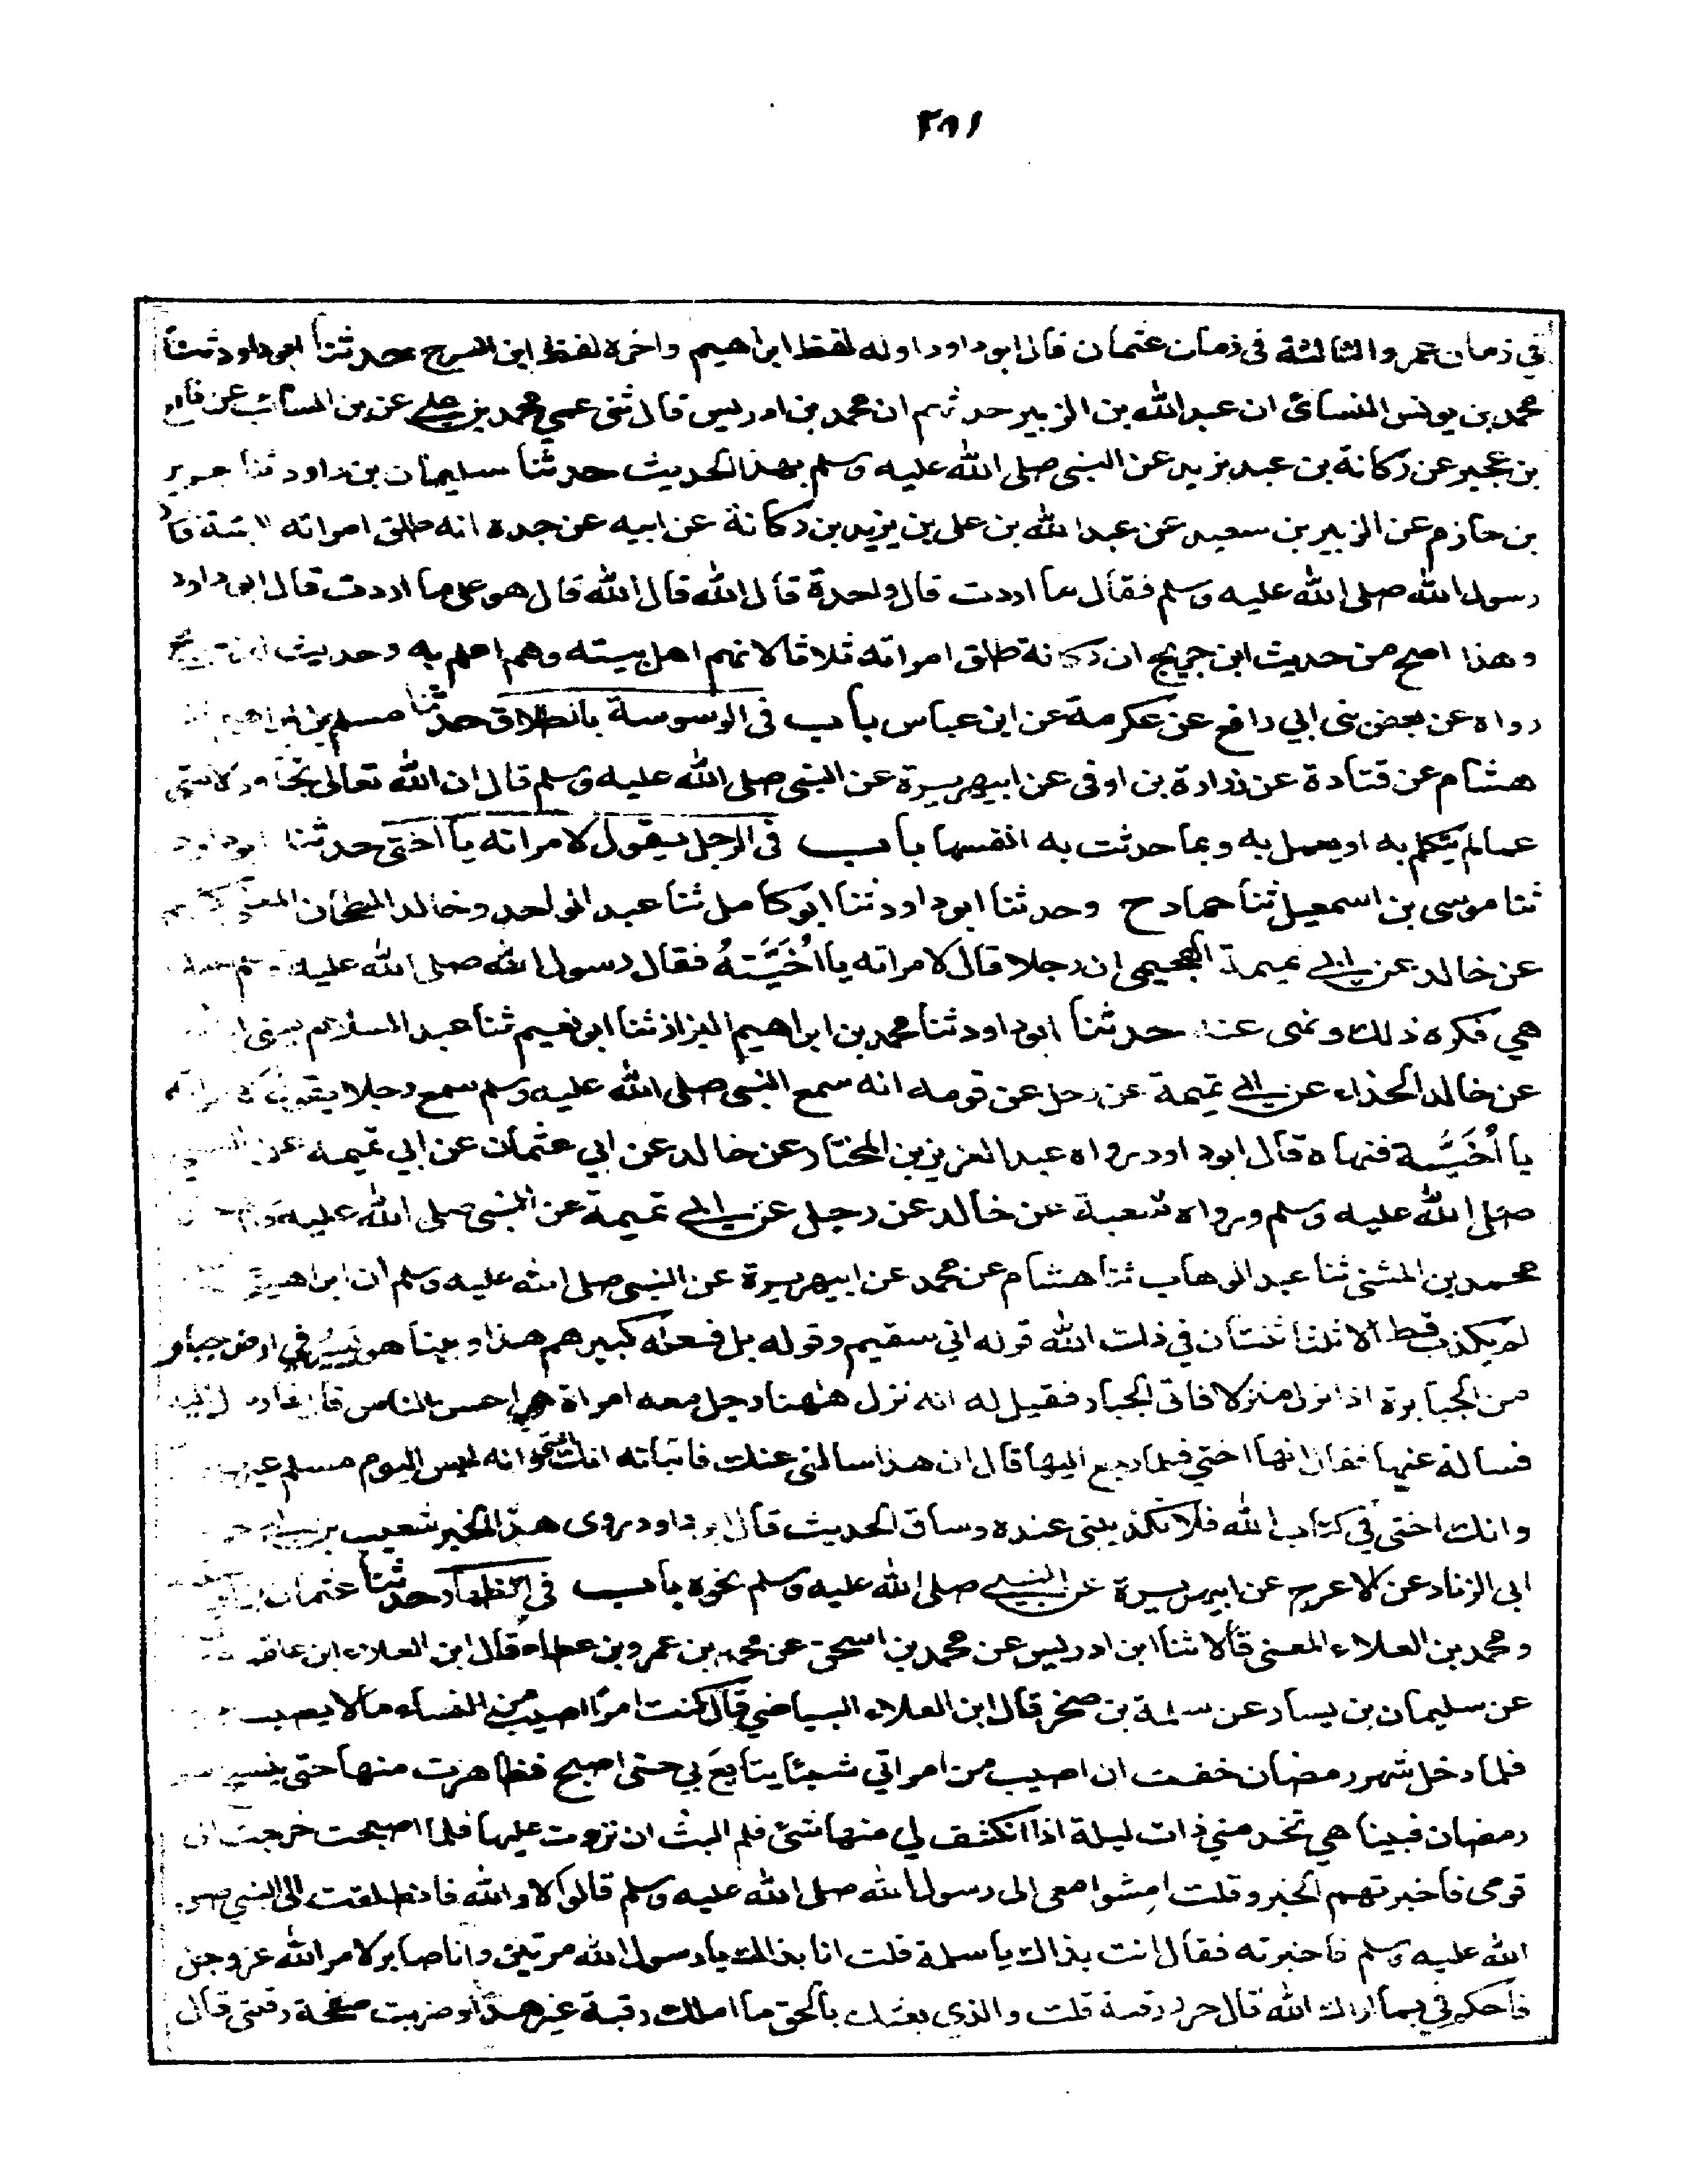 ٢٨١
في زمان عمر والثالثة في زمان عثمان قال ابوداود اوله لفظ ابراهيم واخره لفظ ابن السرح حدثنا ابو داود ثنا
محمد بن يونس النسائي ان عبد الله بن الزبير حدثهم ان محمد بن ادريس قال ثنى عمي محمد بن علي عن بن السائب عن نافع
بن عجير عن ركانة بن عبد يزيد عن النبي صلى الله عليه وسلم بهذا الحديث حدثنا سليمان بن داود ثنا جرير
بن حازم عن الزبير بن سعيد عن عبد الله بن على بن يزيد بن ركانة عن ابيه عن جده انه طلق امراته البتة
رسول الله صلى الله عليه وسلم فقال ما اردت قال واحدة قال الله قال الله قال هو على ما اردت قال ابو داود
وهذا اصح من حديث ابن جريج ان ركانة طلق امراته ثلاثا لانهم اهل بيته وهم اعلم به وحديث ابن جريج
رواه عن بعض بنى ابي رافع عن عكرمة عن ابن عباس باب في الوسوسة بالطلاق حدثنا مسلم بن ابراهيم
هشام عن قتادة عن زرارة بن اوفى عن ابيهريرة عن النبي صلى الله عليه وسلم قال ان الله تعالى تجاوز لامتي
عما لم يتكلم به او يعمل به وبما حدثت به انفسها باب في الرجل يقول لامراته يا اختي حدثنا ابو داود
ثنا موسى بن اسمعيل ثنا حماد ح وحدثنا ابو داود ثنا ابو كامل ثنا عبد الواحد وخالد الطحان المعنى كلهم
عن خالد عن ابي تميمة الهجيمي ان رجلا قال لامراته يا اُخَيَّتهُ فقال رسول الله صلى الله عليه وسلم
هي فكره ذلك ونهى عنه حدثنا ابو داود ثنا محمد بن ابراهيم البزاز ثنا ابو نعيم ثنا عبد السلام يعنى ابن
عن خالد الحذاء عن ابي تميمة عن رجل عن قومه انه سمع النبي صلى الله عليه وسلم سمع رجلا يقول لامراته
يا اُخَيَّة فنهاه قال ابو داود رواه عبد العزيز بن المختار عن خالد عن ابي عثمان عن ابي تميمة عن النبي
صلى الله عليه وسلم ورواه شعبة عن خالد عن رجل عن ابي تميمة عن النبي صلى الله عليه وسلم
محمد بن المثنى ثنا عبد الوهاب ثنا هشام عن محمد عن ابيهريرة عن النبي صلى الله عليه وسلم ان ابراهيم
لم يكذب قط الا ثلثا ثنتان في ذات الله قوله اني سقيم وقوله بل فعله كبيرهم هذا وبينا هو يَسيُر في ارض جبار
من الجبابرة اذا نزل منزلا فاتى الجبار فقيل له انه نزل ههنا رجل معه امراة هي احسن الناس قال فارسل اليه
فساله عنها فقال انها اختي فلما رجع اليها قال ان هذا سالنى عنك فانباته انك اختي وانه ليس اليوم مسلم
وانك اختى في كتاب الله فلا تكذبينى عنده وساق الحديث قال ابو داود روى هذا الخبر شعيب بن
ابى الزناد عن الاعرج عن ابيهريرة عن النبي صلى الله عليه وسلم نحوه باب في الظهار حدثنا عثمان بن
ومحمد بن العلاء المعنى قالا ثنا ابن ادريس عن محمد بن اسحق عن محمد بن عمرو بن عطاء قال ابن العلاء ابن علقمة
عن سليمان بن يسار عن سلمة بن صخر قال ابن العلاء البياضي قال كنت امرًا اصيب من النساء ما لا يصيب
فلما دخل شهر رمضان خفت ان اصيب من امراتي شيئا يتابَعَ بي حتى اصبح فظاهرت منها حتى ينسلخ شهر
رمضان فبينا هي تخدمني ذات ليلة اذا انكشف لي منها شئ فلم البث ان نزوت عليها فلما اصبحت خرجت الى
قومى فاخبرتهم الخبر وقلت امِشوا معى الى رسول الله صلى الله عليه وسلم قالوا لا والله فانطلقت الى النبي صلى
الله عليه وسلم فاخبرته فقال انت بذاك يا سلمة قلت انا بذاك يا رسول الله مرتين وانا صابر لامر الله عز وجل
فاحكم في بما اراك الله قال حرر رقبة قلت والذي بعثك بالحق ما املك رقبة غيرها وضربت صفحة رقبتى قال